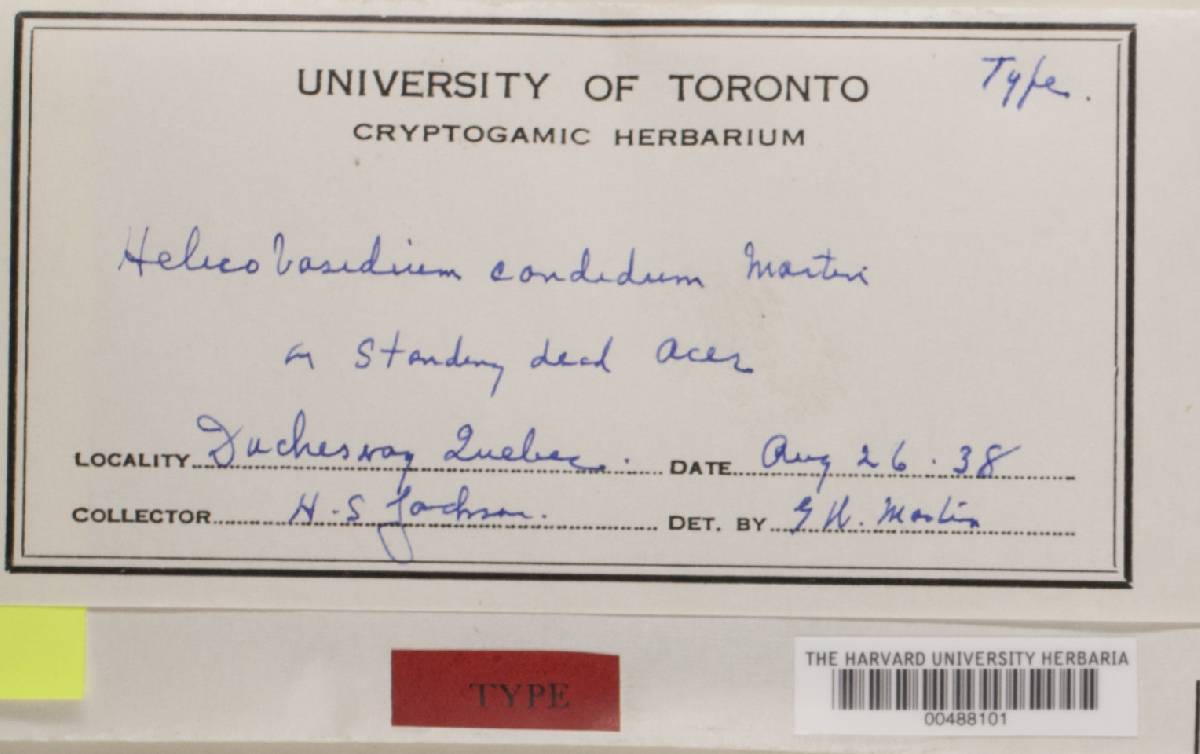 Type.
UNIVERSITY OF TORONTO
CRYPTOGAMIC HERBARIUM
Helicobasidium candidum Martin
on standing dead Acer
LOCALITY Duchesnay Quebec. DATE Aug 26. 38
COLLECTOR H. S Jackson. DET. BY G W. Martin
TYPE
THE HARVARD UNIVERSITY HERBARIA
00488101